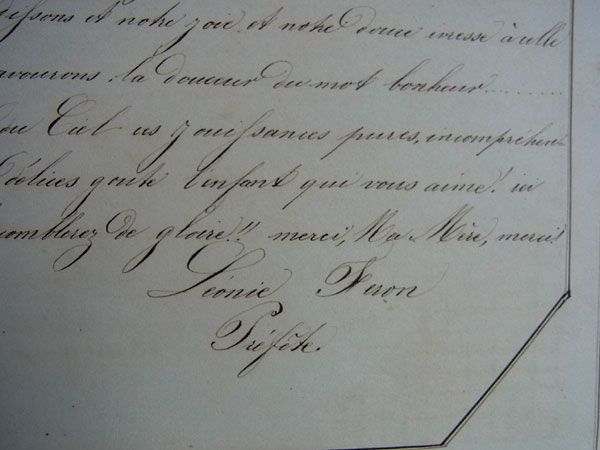 dissons et notre joie et notre douce ivresse à celle
avourons : la douceur du mot bonheur..........
du Ciel ces jouissances pures, incompréhen-
délices goute l'enfant qui vous aime! ici
comblerez de gloire!! merci, Ma Mère, merci!
Léonie Feron
Préfête.